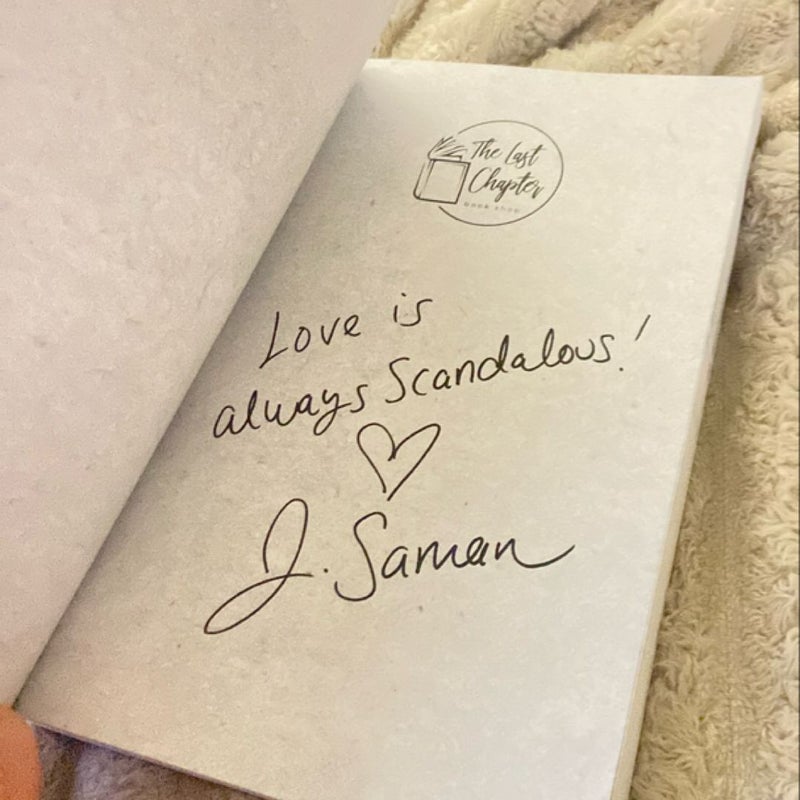 The Last
Chapter
book shop
Love is
always Scandalous!
J. Saman